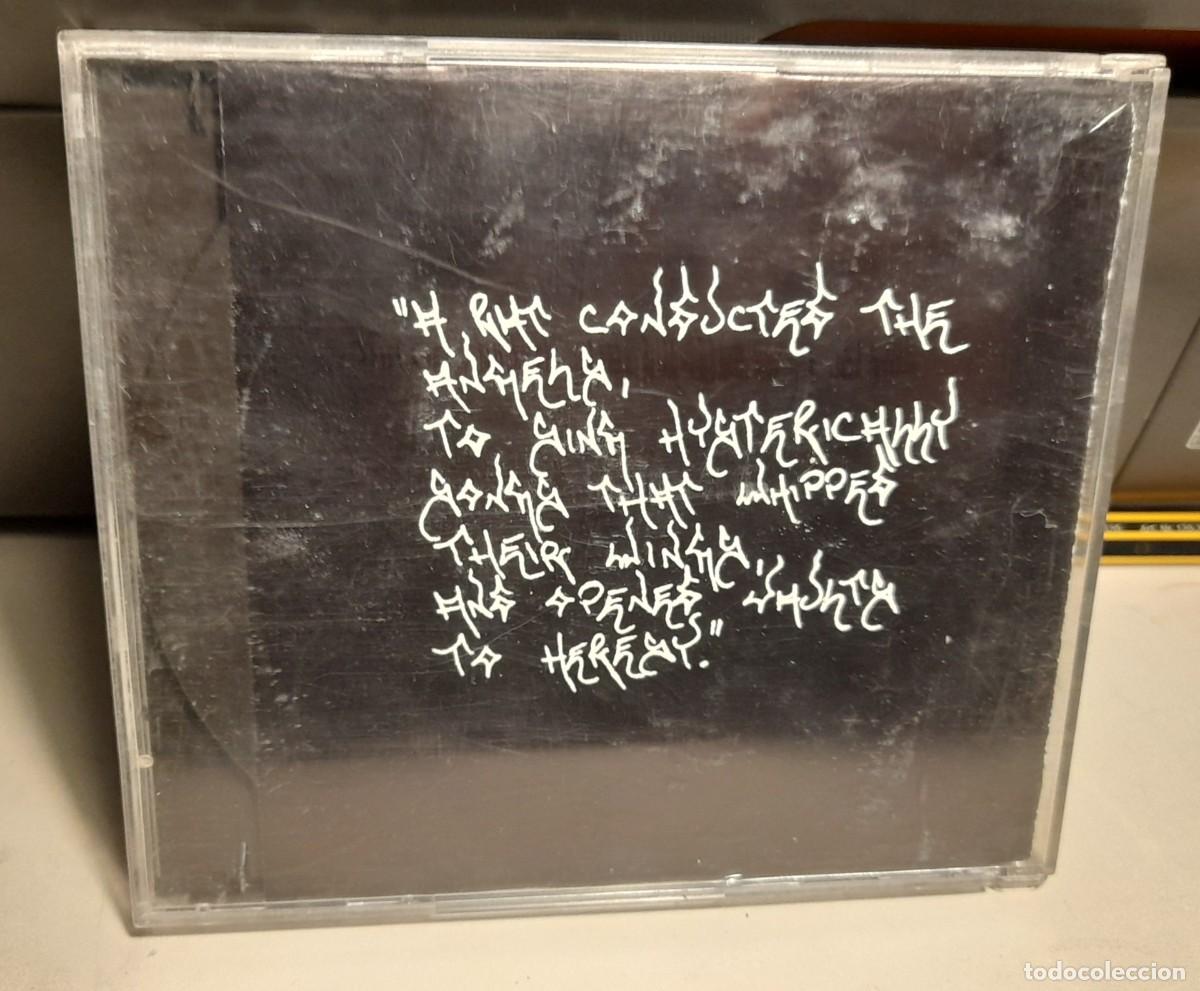 "A RAT CONDUCTED THE
ANGELS,
TO SING HYSTERICALLY
SONGS THAT WHIPPED
THEIR WINGS,
AND OPENED VAULTS
TO HERESY."
todocoleccion